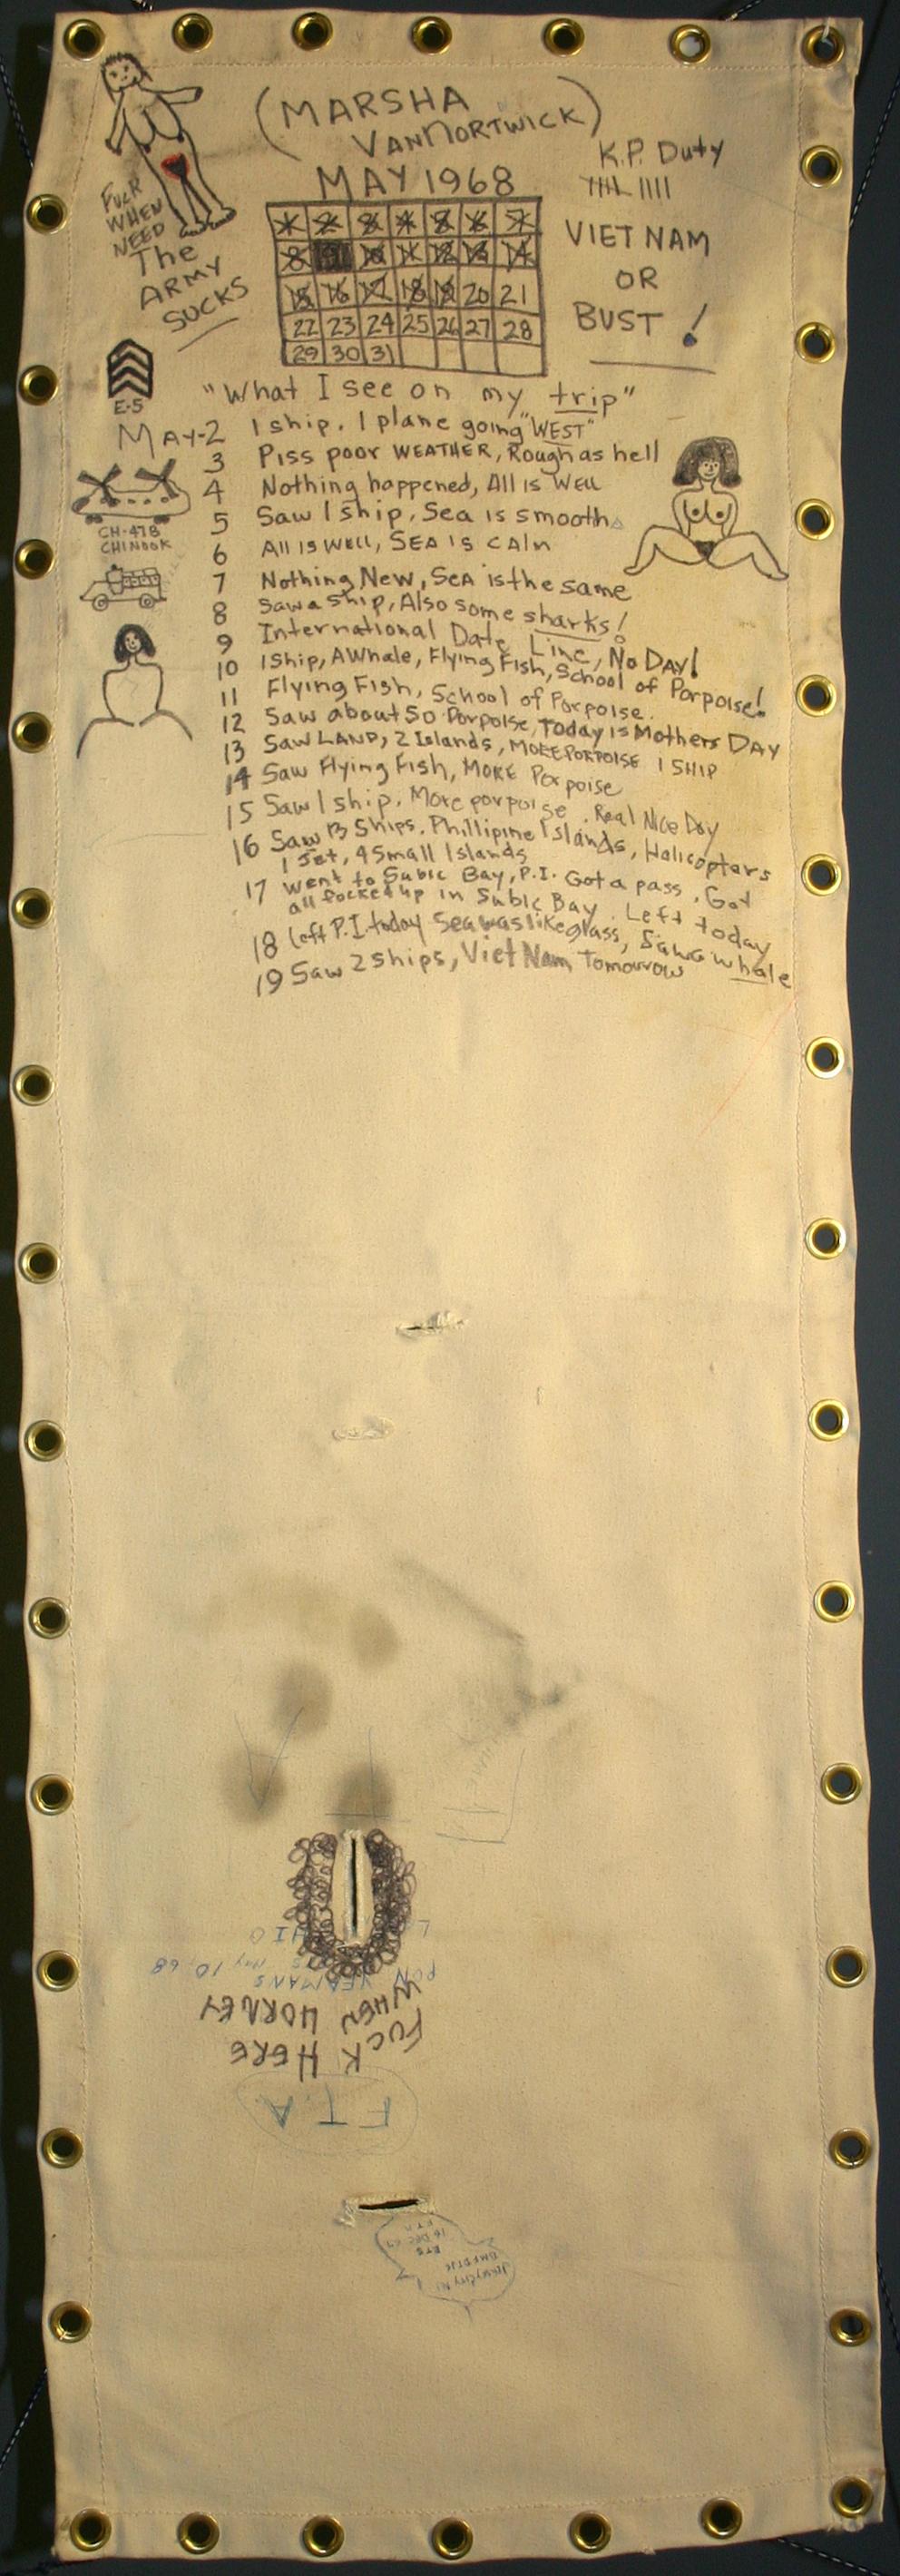 (MARSHA
VANNORTWICK)
MAY 1968
1 2 3 4 5 6 7
8 9 10 11 12 13 14
15 16 17 18 19 20 21
22 23 24 25 26 27 28
29 30 31
K.P. Duty
VIET NAM
OR
BUST !
FUCK
WHEN
NEED
The
ARMY
SUCKS
E-5
CH-47B
CHINOOK
"What I see on my trip"
MAY-2 1 ship. 1 plane going "WEST"
3 Piss poor WEATHER, Rough as hell
4 Nothing happened, All is Well
5 Saw 1 ship. Sea is smooth
6 All is Well, SEA is CAlm
7 Nothing New, SeA is the same
8 Saw a ship, Also some sharks!
9 International Date Line, No DAY!
10 1 Ship, A Whale, Flying Fish, School of Porpoise!
11 Flying Fish, School of Porpoise.
12 Saw about 50 Porpoise, Today is Mothers DAY
13 Saw LAND, 2 Islands, MORE PORPOISE 1 SHIP
14 Saw Flying Fish, MORE Porpoise
15 Saw 1 ship. More porpoise. Real Nice Day
16 Saw 13 Ships. Phillipine Islands, Halicopters
1 Jet, 4 Small Islands
17 Went to Subic Bay, P.I. Got a pass. Got
all focked up in Subic Bay. Left today
18 Left P.I. today Sea was like glass, Saw a whale
19 Saw 2 Ships, Viet Nam Tomorrow
F.T.A.
FUCK HERE
WHEN HORNEY
RON YEAMANS
May 10, 68